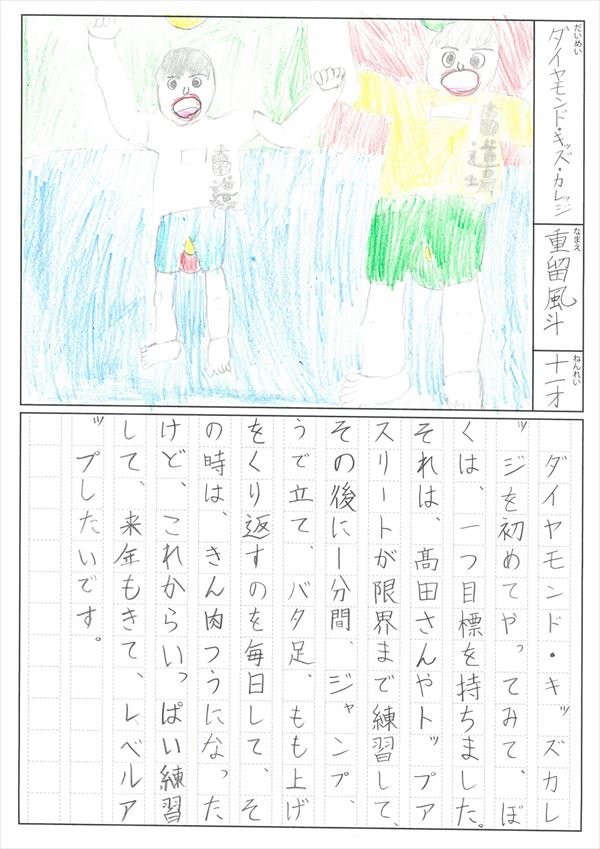 だいめい
ダイヤモンド・キッズ・カレッジ
なまえ
重留風斗
ねんれい
十一才
髙田道場
髙田道場
ダイヤモンド・キッズカレ
ッジを初めてやってみて、ぼ
くは、一つ目標を持ちました。
それは、髙田さんやトップア
スリートが限界まで練習して、
その後に1分間、ジャンプ、
うで立て、バタ足、もも上げ
をくり返すのを毎日して、そ
の時は、きん肉つうになった
けど、これからいっぱい練習
して、来年もきて、レベルア
ップしたいです。